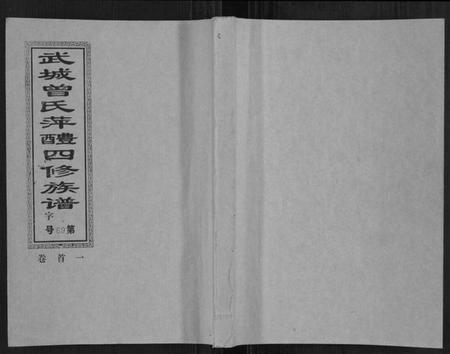 武城曾氏萍醴四修族谱
字
第69号
卷首一